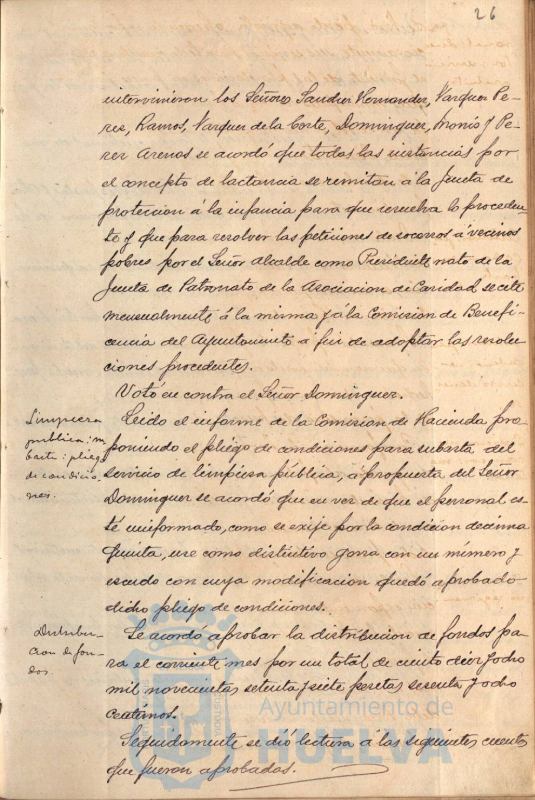 26
intervinieron los Señores Sanchez Hernandez, Vazquez Pe-
rez, Ramos, Vazquez de la Corte, Dominguez, Monis y Pe-
rez Arenas se acordó que todas las instancias por
el concepto de lactancia se remitan á la Junta de
proteccion á la infancia para que resuelva lo proceden-
te y que para resolver las peticiones de socorros á vecinos
pobres por el Señor Alcalde como Presidente nato de la
Junta de Patronato de la Asociacion de Caridad, se cite
mensualmente á la misma y á la Comision de Benefi-
cencia del Ayuntamiento á fin de adoptar las resolu-
ciones procedentes.
Votó en contra el Señor Dominguez.
Limpieza
publica: su
basta: pliego
de condicio
nes.
Leido el informe de la Comision de Hacienda pro-
poniendo el pliego de condiciones para subasta del
servicio de limpieza pública, á propuesta del Señor
Dominguez se acordó que en vez de que el personal es-
té uniformado, como se exije por la condicion decima
quinta, use como distintivo gorra con un número y
escudo con cuya modificacion quedó aprobado
dicho pliego de condiciones.
Distribu-
cion de fon-
dos.
Se acordó aprobar la distribucion de fondos pa-
ra el corriente mes por un total de ciento diez y ocho
mil novecientas setenta y siete pesetas sesenta y ocho
centimos.
Seguidamente se dió lectura á las siguientes cuentas
que fueron aprobadas.
Ayuntamiento de
HUELVA